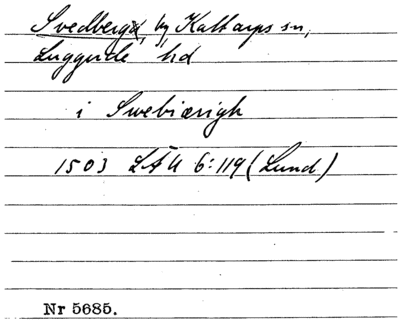 Svedberga, by Kattarps sn,
Luggude hd
i Swebiærigh
1503 LÄU 6:119 (Lund)
Nr 5685.